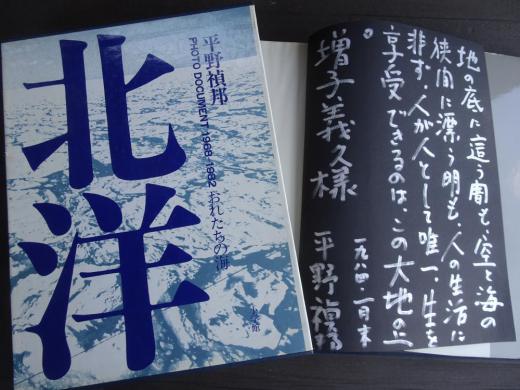 北洋
平野禎邦
PHOTO DOCUMENT 1968-1982 おれたちの海
地の底に這う闇も、空と海の
狭間に漂う明も、人の生活に
非ず。人が人として唯一、生を
享受できるのは、この大地の上
。
増子義久様
一九八四
平野禎邦